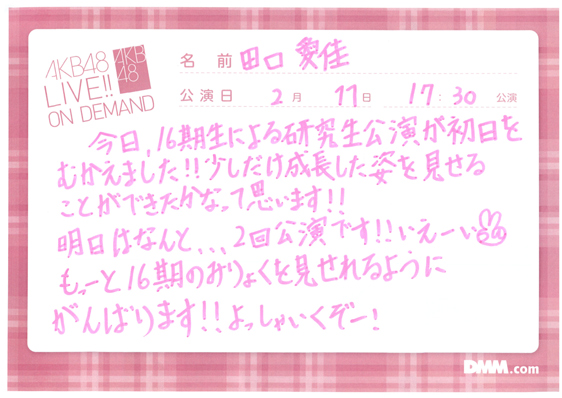 AKB48
LIVE!!
ON DEMAND
AKB
48
名 前 田口 愛佳
公演日 2月 11日 17:30 公演
今日、16期生による研究生公演が初日を
むかえました!!少しだけ成長した姿を見せる
ことができたかなって思います!!
明日はなんと、、、2回公演です!!いえーい
もっーと16期のおりょくを見せれるように
がんばります!!よっしゃいくぞー!
DMM.com